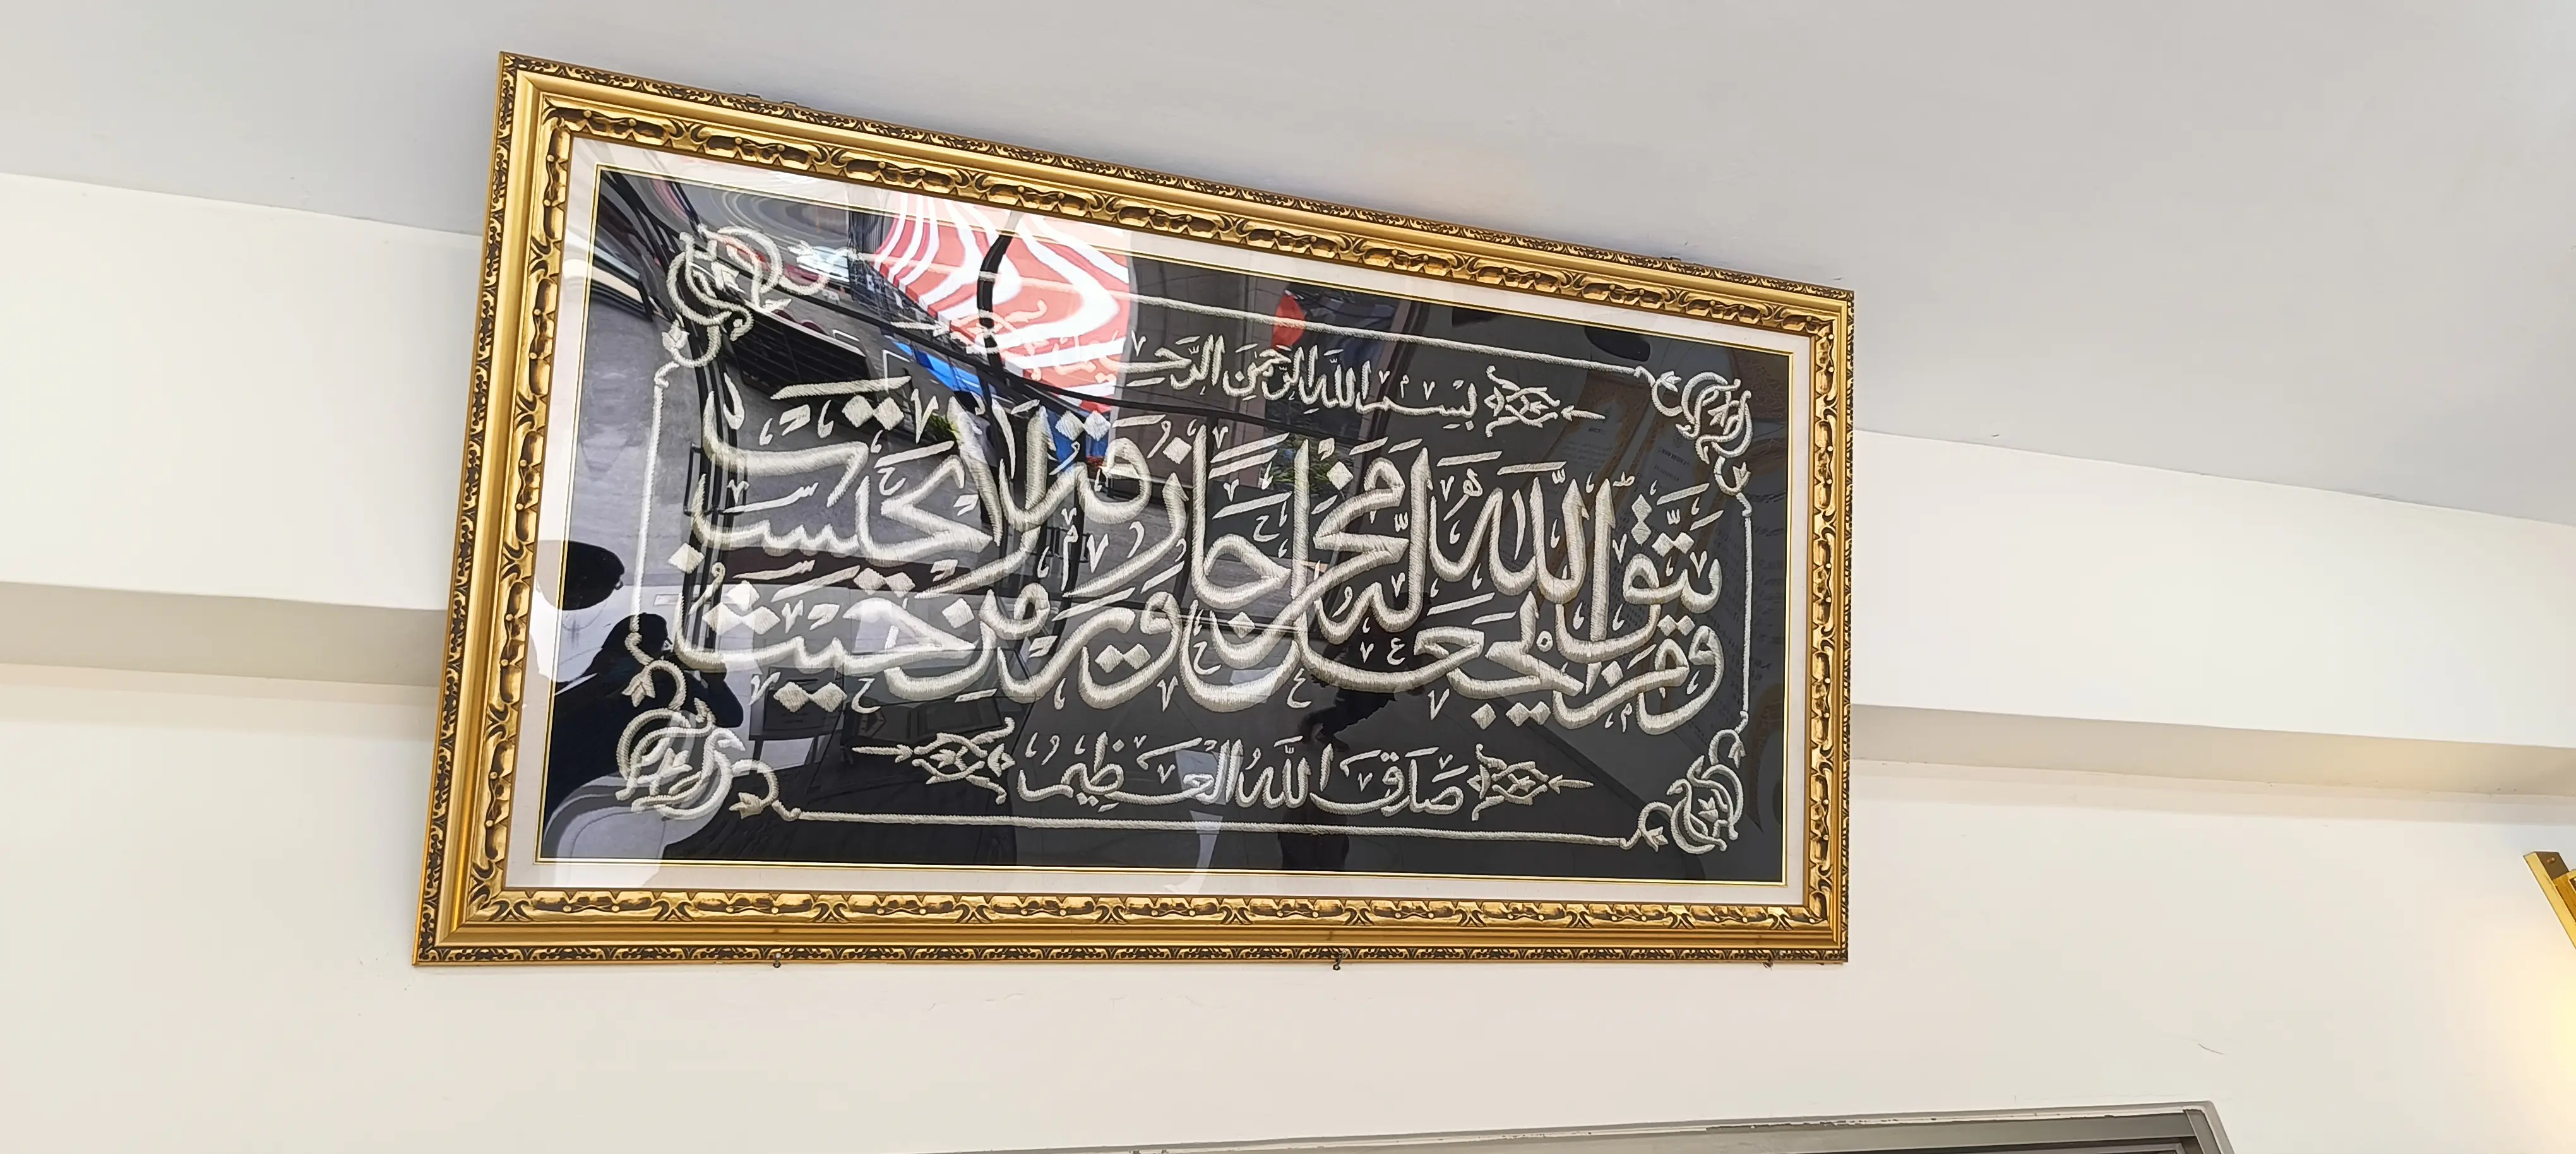 بِسْمِ اللَّهِ الرَّحْمَنِ
وَمَن يَتَّقِ اللَّهَ يَجْعَل لَّهُ مَخْرَجًا
وَيَرْزُقْهُ مِنْ حَيْثُ لَا يَحْتَسِبُ
صَدَقَ اللَّهُ الْعَظِيمُ